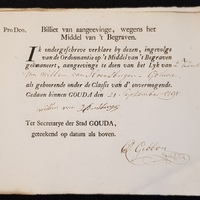 Pro Deo.
Billiet van aangeevinge, wegens het
Middel van 't Begraven.
IK ondergeschreve verklare by dezen, ingevolge
van de Ordonnantie op 't Middel van 't Begraven
geëmaneert, aangeevinge te doen van het Lyk van
van Willem
als gehoorende onder de Classis van d' onvermogende.
Gedaan binnen GOUDA den 21 September
Ter Secretarye der Stad GOUDA,
geteekend op datum als boven.